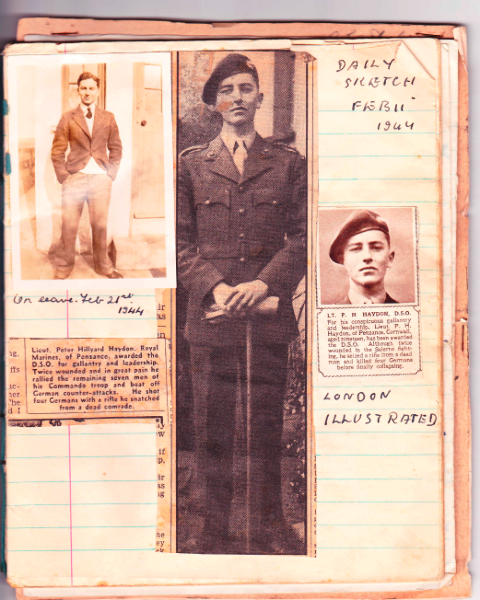 DAILY
SKETCH
FEB 11
1944
On leave. Feb 21st
1944
Lieut. Peter Hillyard Haydon, Royal
Marines, of Penzance, awarded the
D.S.O. for gallantry and leadership.
Twice wounded and in great pain he
rallied the remaining seven men of
his Commando troop and beat off
German counter-attacks. He shot
four Germans with a rifle he snatched
from a dead comrade.
LT. P. H HAYDON, D.S.O.
For his conspicuous gallantry
and leadership, Lieut. P. H.
Haydon, of Penzance, Cornwall,
aged nineteen, has been awarded
the D.S.O. Although twice
wounded in the Salerno fight-
ing, he seized a rifle from a dead
man and killed four Germans
before finally collapsing.
LONDON
ILLUSTRATED